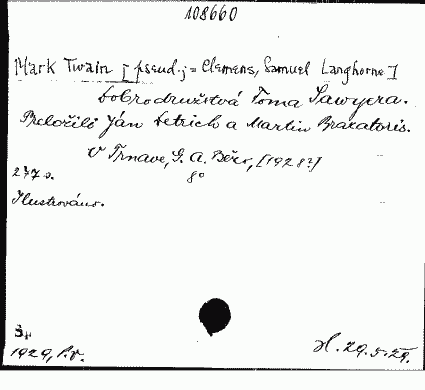 108660
Mark Twain [pseud.; = Clemens, Samuel Langhorne]
Dobrodružstvá Toma Sawyera.
Preložili Ján Detrich a Martin Brazatoris.
V Trnave, G. A. Bežo, [1928?]
8°
237 s.
Ilustrováno.
Šp
1929, P.v.
H. 29.5.29.